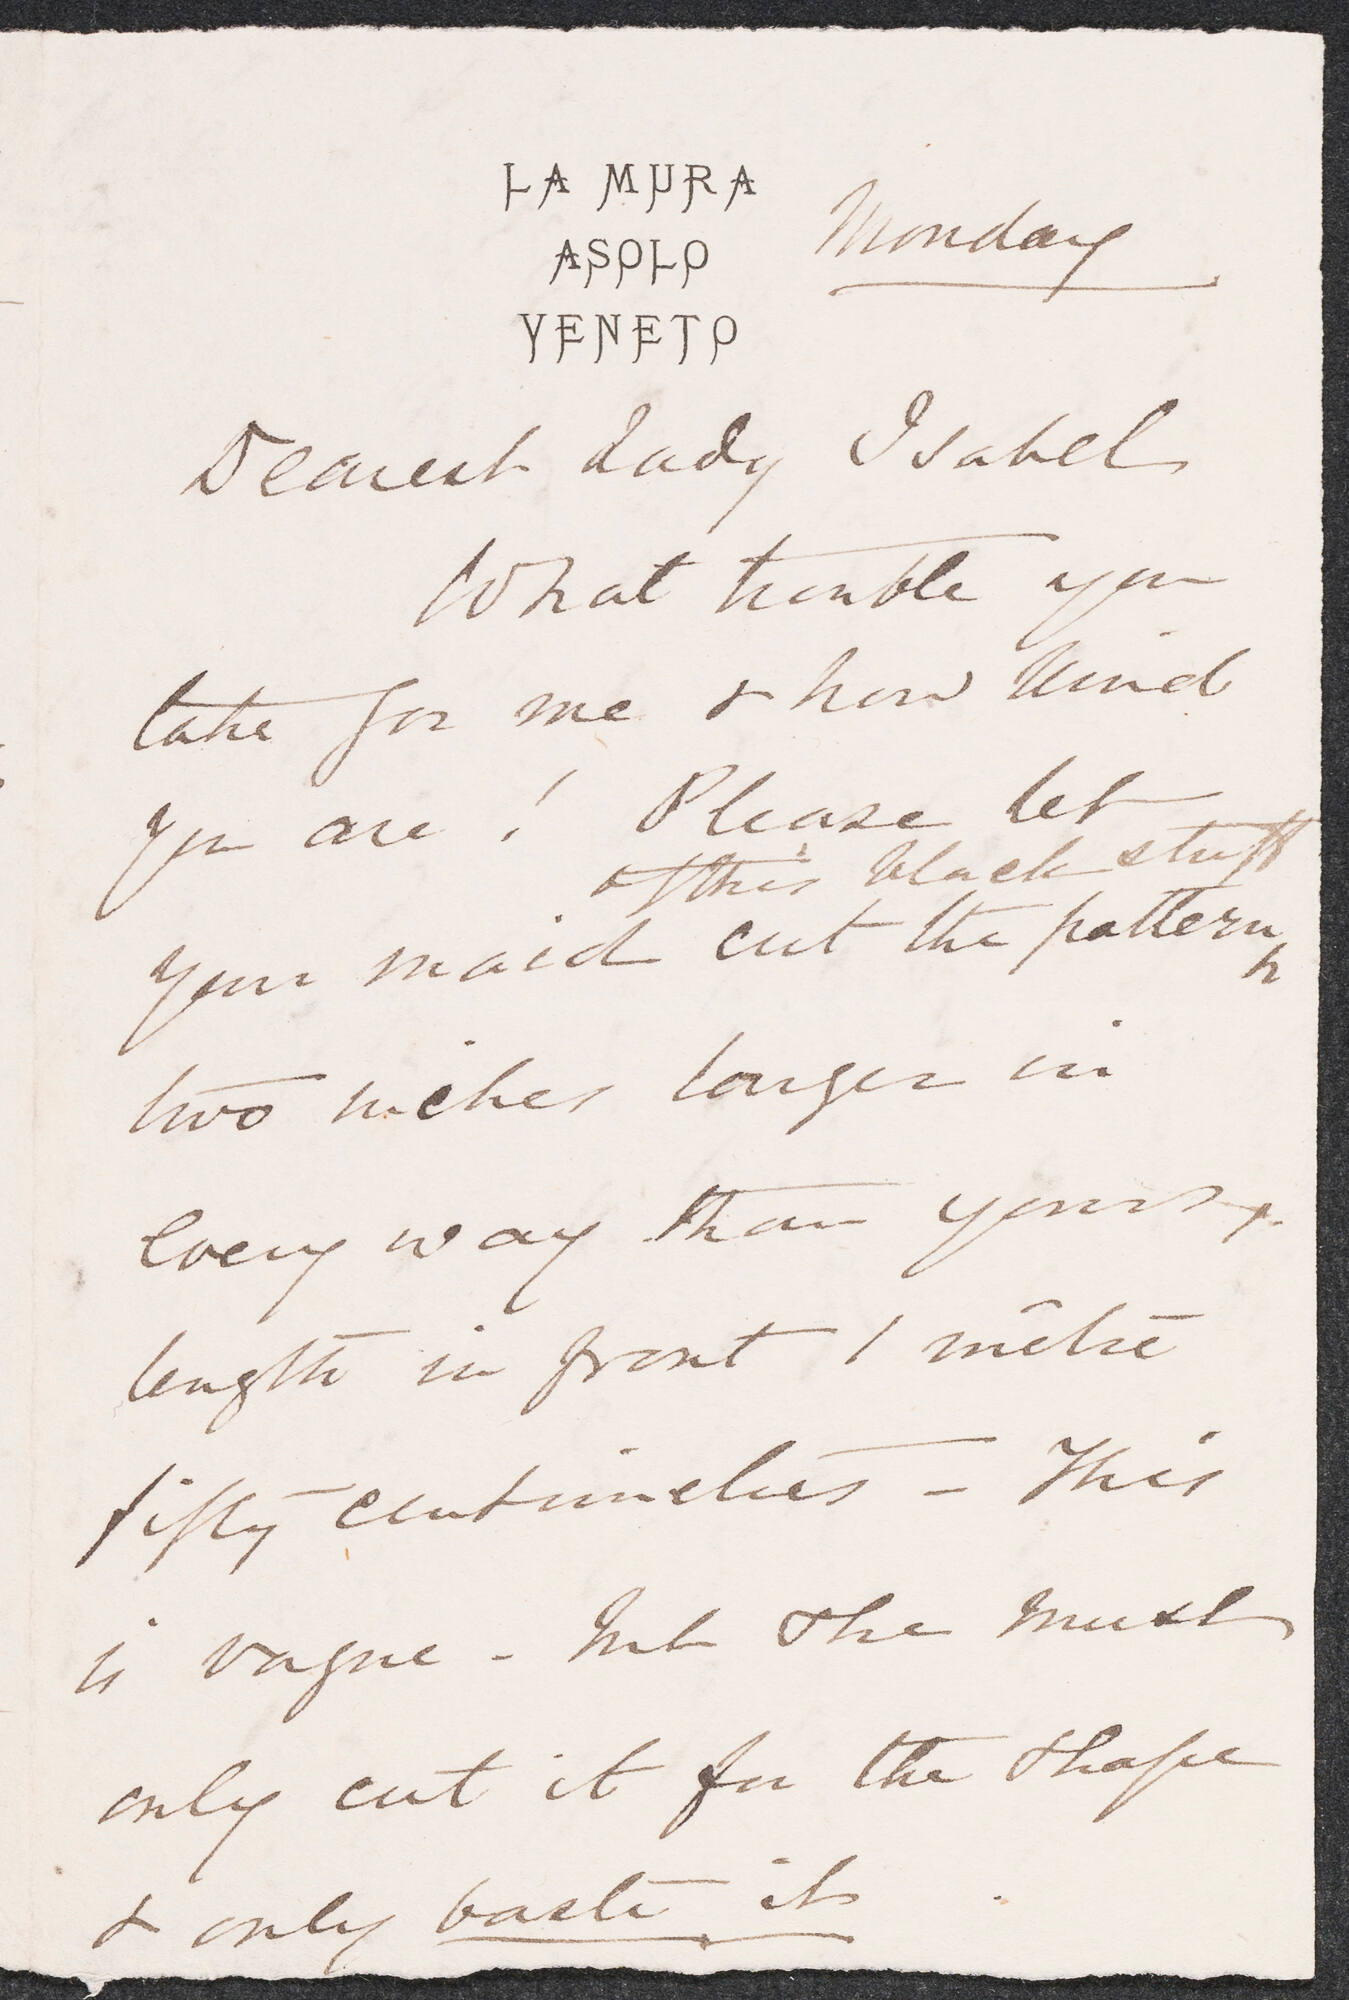 LA MURA
ASOLO
VENETO
Monday
Dearest Lady Isabel
What trouble you
take for me & how kind
you are! Please let
of this black stuff
your maid cut the pattern
two inches longer in
every way than yours
length in front 1 mêtre
fifty centimetres - This
is vague - but she must
only cut it for the shape
& only baste it